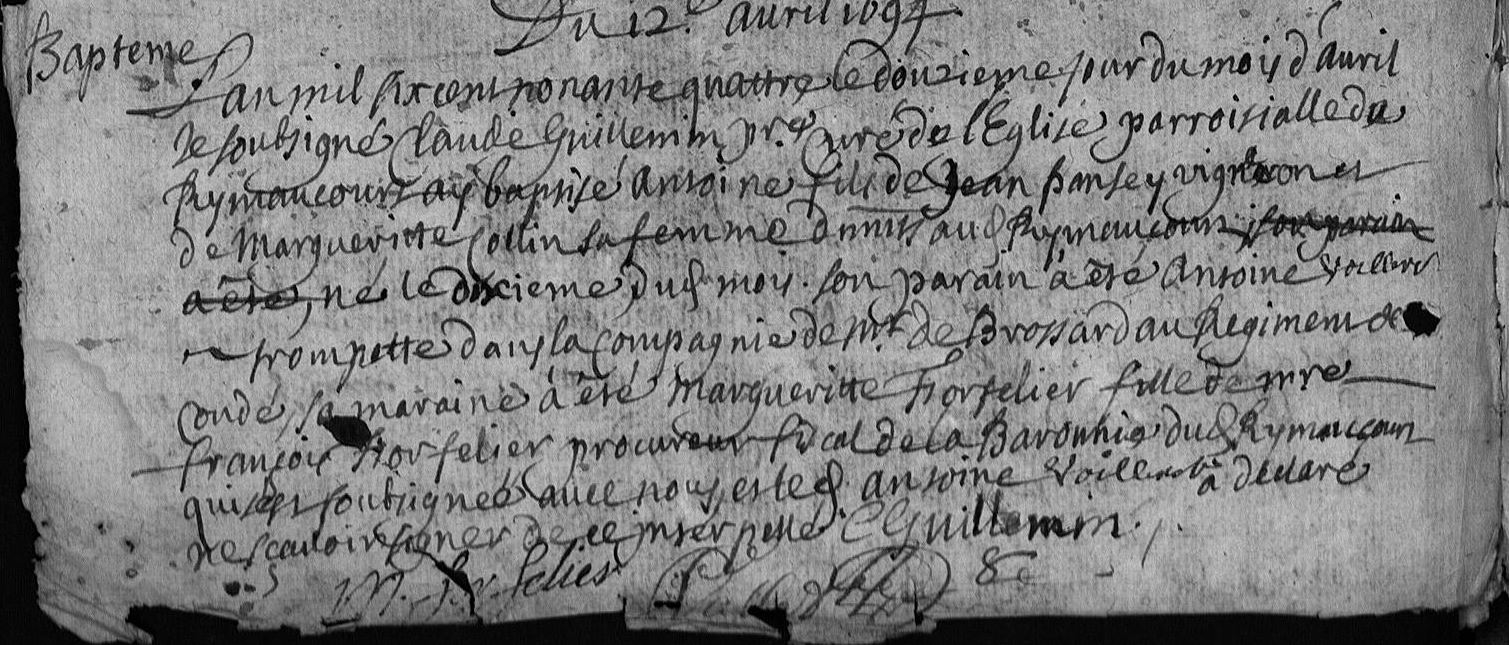 Du 12.e avril 1694
Bapteme
L'an mil six cent nonante quattre le douzieme jour du mois d'auril
Je soubsigné Claude Guillemin pr.e Curé de l'Eglise parroisialle de
Rymaucourt ay baptisé Antoine fils de Jean pansey vigneron et
de Margueritte Collin sa femme dmts aud Rymaucourt, son parain
a été, né le dixieme dud mois. son parain à été Antoine Voillemot
trompette dans la Compagnie de Mr. de Brossard au Regiment de
Condé, sa maraine à été Margueritte Horfelier fille de mre
françois Horfelier procureur fiscal de la Baronnie dud Rymaucourt
qui s'est soubsignée auec nous et led Antoine Voillemot à declaré
ne scauoir signer de ce interpellé. C Guillemin.
M.